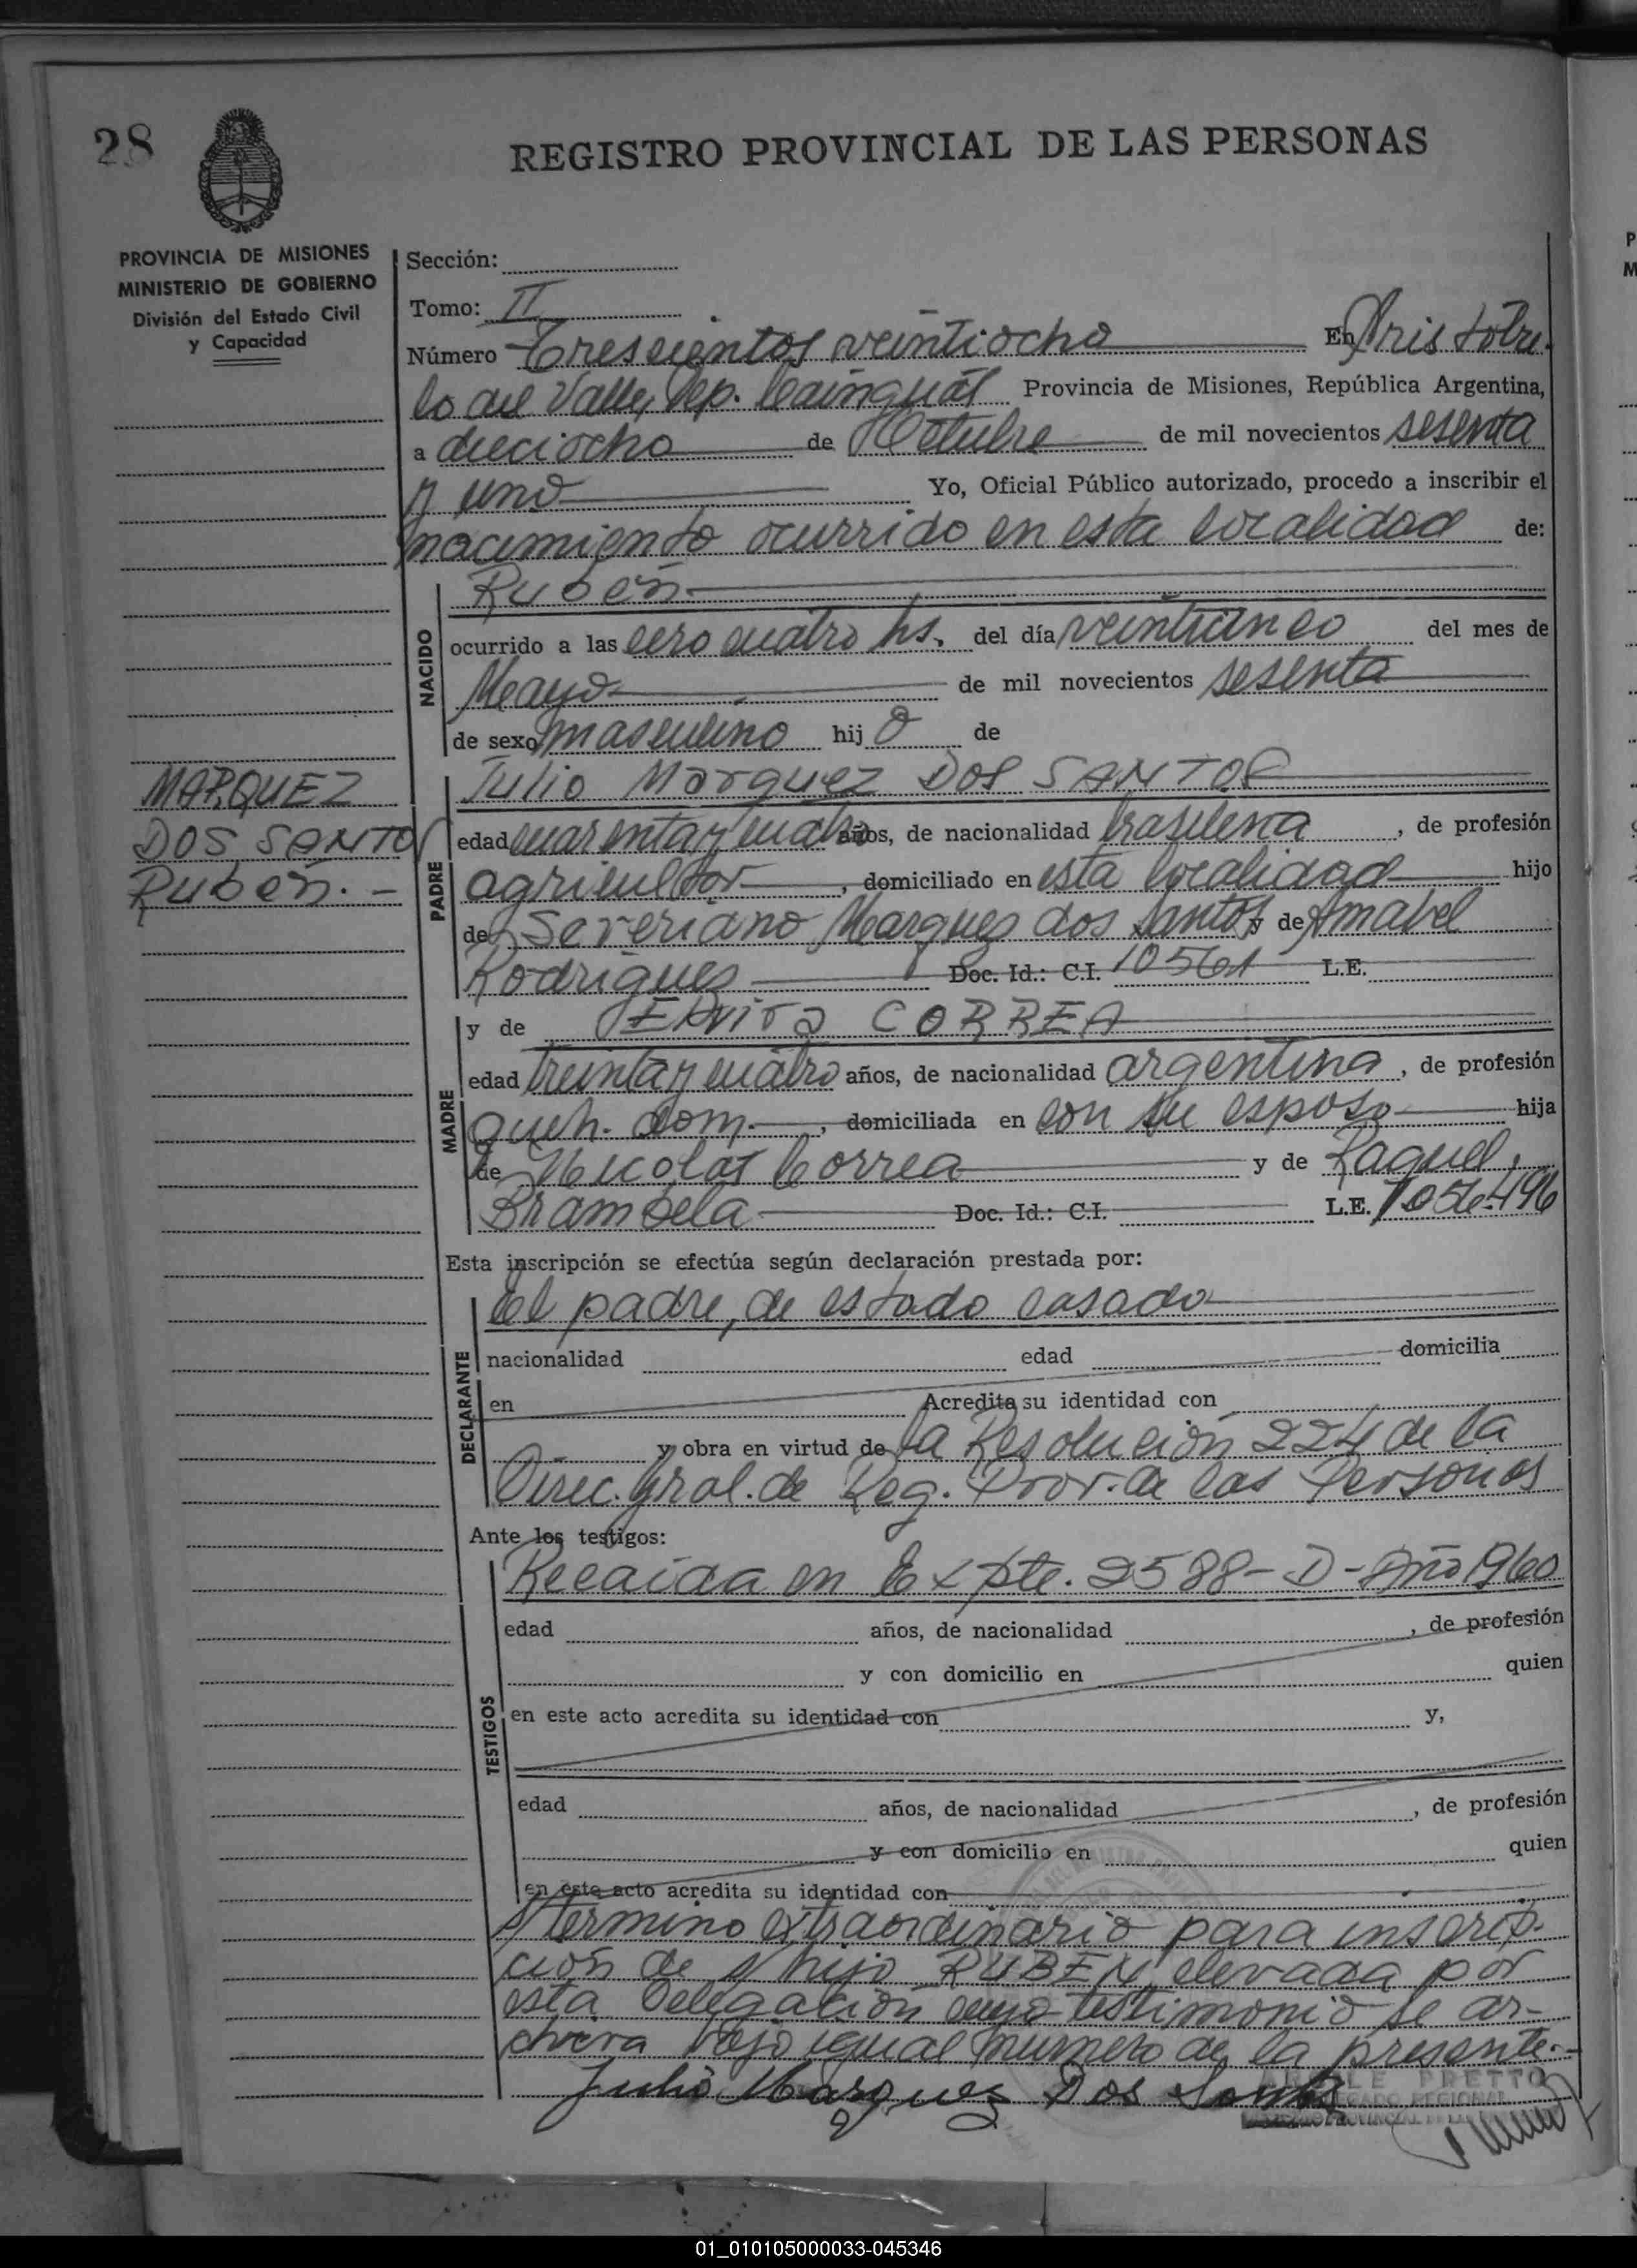 28
REGISTRO PROVINCIAL DE LAS PERSONAS
PROVINCIA DE MISIONES
MINISTERIO DE GOBIERNO
División del Estado Civil
y Capacidad
Sección:
Tomo: II
Número Trescientos veintiocho En Aristóbu-
lo del Valle, Dep. Cainguás Provincia de Misiones, República Argentina,
a dieciocho de Octubre de mil novecientos sesenta
y uno Yo, Oficial Público autorizado, procedo a inscribir el
nacimiento ocurrido en esta localidad de:
NACIDO
Rubén
ocurrido a las cero cuatro hs. del día veinticinco del mes de
Mayo de mil novecientos sesenta
de sexo masculino hij o de
MARQUEZ
DOS SANTOS
Rubén.-
PADRE
Julio Marquez DOS SANTOS
edad cuarenta y cuatro años, de nacionalidad brasilena, de profesión
agricultor, domiciliado en esta localidad hijo
de Severiano Marquez dos Santos y de Amabel
Rodriguez Doc. Id.: C.I. 10561 L.E.
MADRE
y de CORREA
edad treinta y cuatro años, de nacionalidad argentina, de profesión
queh. dom., domiciliada en con su esposo hija
de Nicolas Correa y de Raquel
Brambela Doc. Id.: C.I. L.E.
Esta inscripción se efectúa según declaración prestada por:
DECLARANTE
el padre, de estado casado
nacionalidad edad domicilia
en Acredita su identidad con
y obra en virtud de la Resolución 224 de la
Direc. Gral. de Reg. Prov. de las Personas
Ante los testigos:
TESTIGOS
Recaida en Expte. 2588-D-Año 1960
edad años, de nacionalidad , de profesión
y con domicilio en quien
en este acto acredita su identidad con y,
edad años, de nacionalidad , de profesión
y con domicilio en quien
en este acto acredita su identidad con
s/termino extraordinario para inscrip-
ción de s/hijo RUBEN, elevada por
esta Delegación cuyo testimonio se ar-
chiva bajo igual numero de la presente.-
Julio Marquez Dos Santos
PRETTO
REGIONAL
01_010105000033-045346